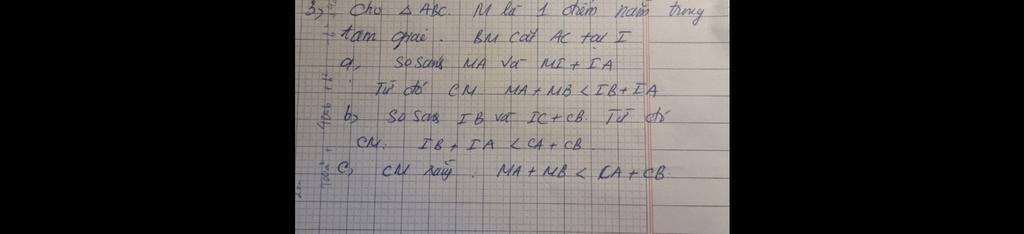 3, Cho △ ABC. M là 1 điểm nằm trong
tam giác. BM cắt AC tại I
a, So sánh MA và MI + IA
Từ đó CM MA + MB < IB + IA
b, So sánh IB và IC + CB. Từ đó
CM: IB + IA < CA + CB.
c, CM rằng: MA + MB < CA + CB.